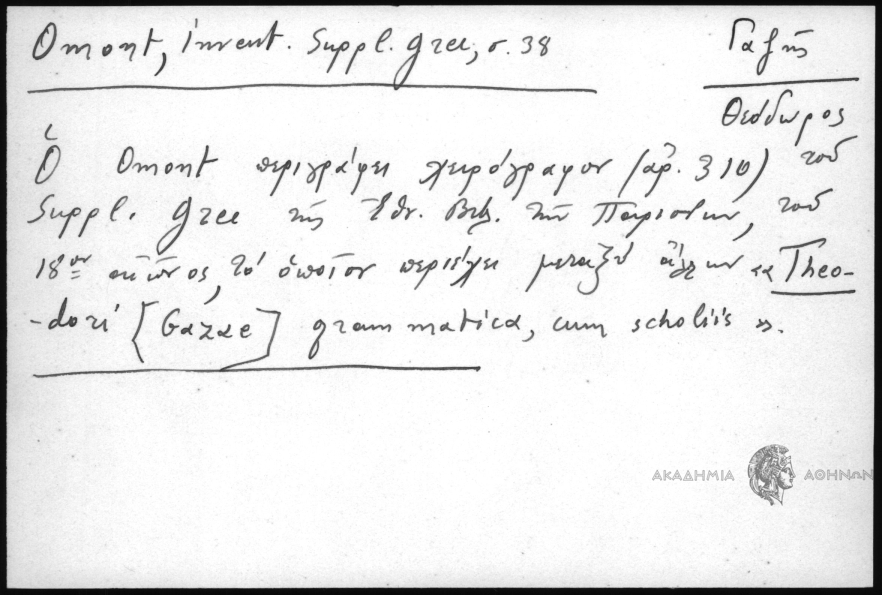 Omont, invent. Suppl. grec, σ. 38
Γαζῆς
Θεόδωρος
Ὁ Omont περιγράφει χειρόγραφον (ἀρ. 310) τοῦ
Suppl. grec τῆς Ἐθν. Βιβ. τῶν Παρισίων, τοῦ
18ου αἰῶνος, τό ὁποῖον περιέχει μεταξύ ἄλλων «Theo-
-dori [Gazae] grammatica, cum scholiis».
ΑΚΑΔΗΜΙΑ ΑΘΗΝΩΝ